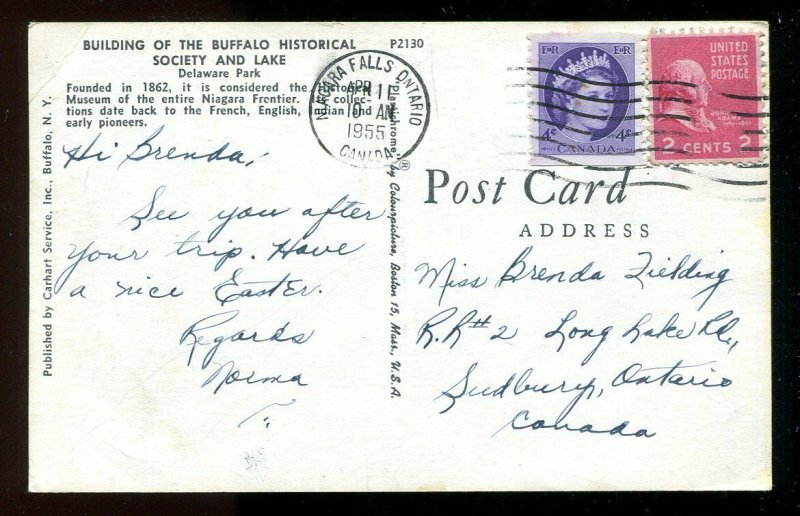 BUILDING OF THE BUFFALO HISTORICAL
SOCIETY AND LAKE
Delaware Park
P2130
Founded in 1862, it is considered the Historical
Museum of the entire Niagara Frontier. Its collec-
tions date back to the French, English, Indian and
early pioneers.
NIAGARA FALLS ONTARIO
APR 11
10 AM
1955
CANADA
EIIR EIIR
4¢ 4¢
CANADA
UNITED
STATES
POSTAGE
JOHN
ADAMS
2 CENTS 2
Hi Brenda,
See you after
your trip. Have
a nice Easter.
Regards
Norma
Post Card
ADDRESS
Miss Brenda Fielding
R.R # 2 Long Lake Rd.,
Sudbury, Ontario
Canada
Published by Carhart Service, Inc., Buffalo, N. Y.
Plastichrome ® by Colourpicture, Boston 15, Mass., U.S.A.